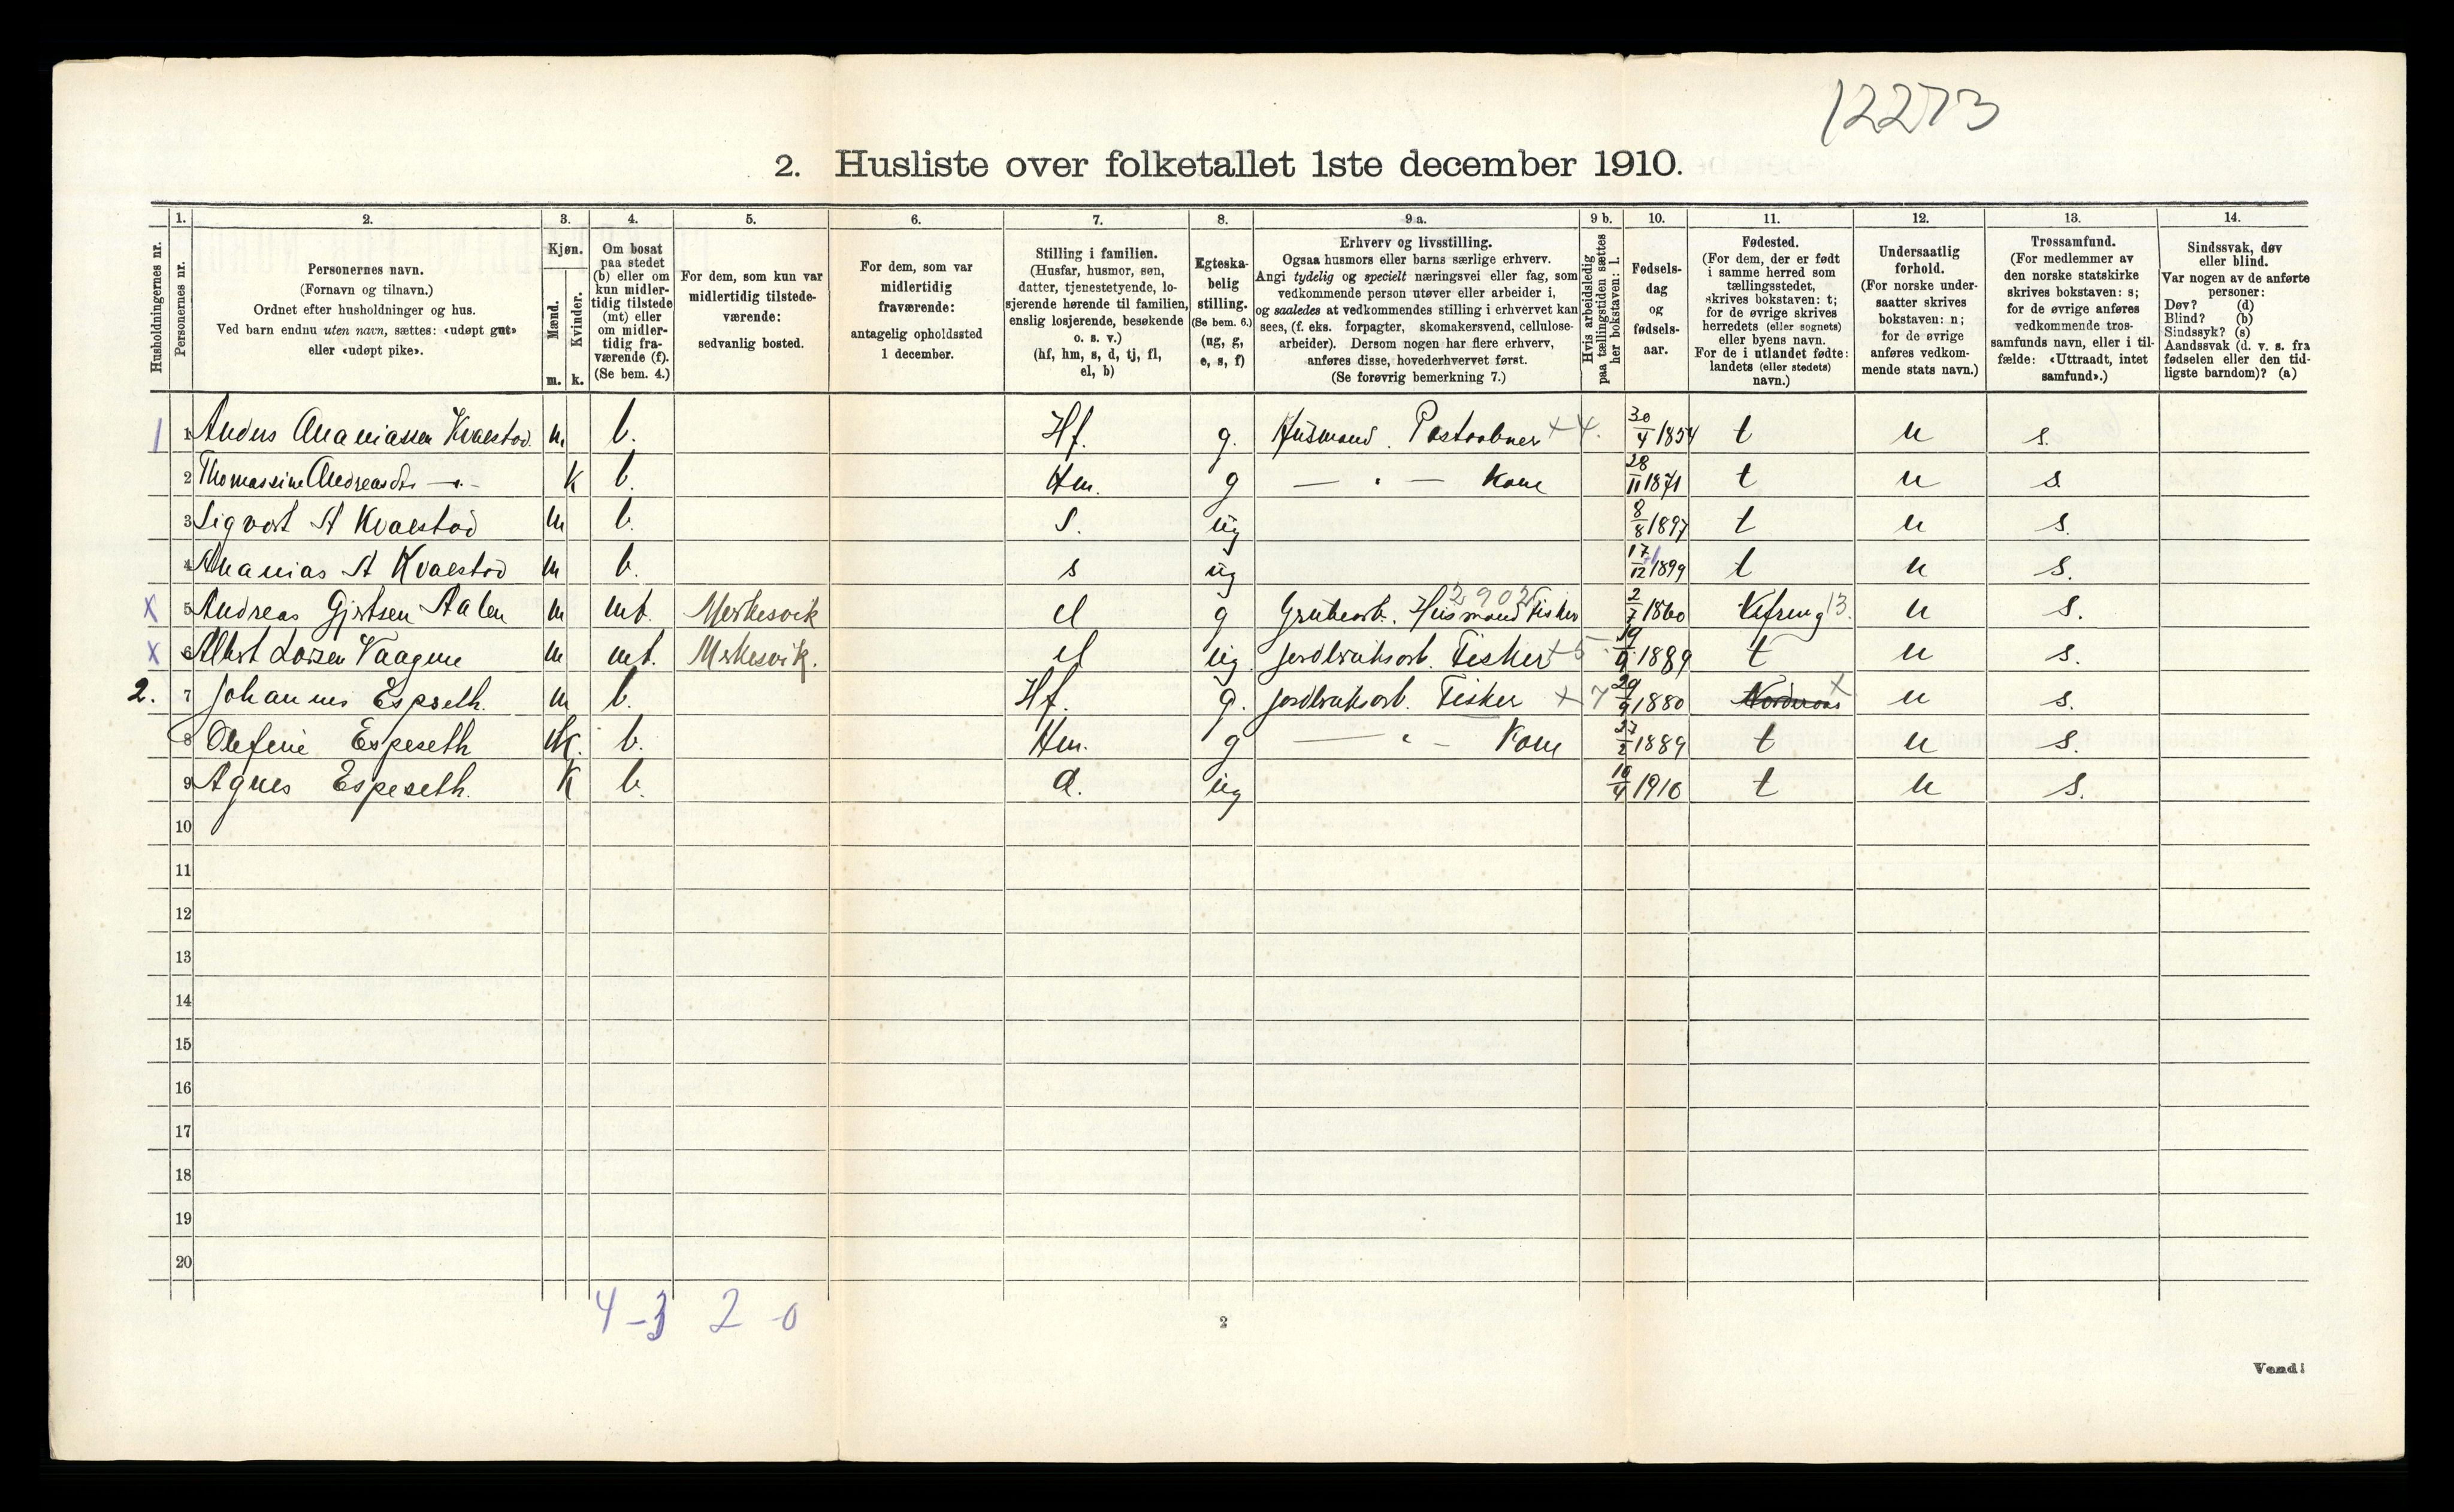 12273
2. Husliste over folketallet 1ste december 1910.
Husholdningernes nr.
1. Personernes nr.
2. Personernes navn. (Fornavn og tilnavn.) Ordnet efter husholdninger og hus. Ved barn endnu uten navn, sættes: «udøpt gut» eller «udøpt pike».
3. Kjøn. Mænd. m. Kvinder. k.
4. Om bosat paa stedet (b) eller om kun midler-tidig tilstede (mt) eller om midler-tidig fra-værende (f). (Se bem. 4.)
5. For dem, som kun var midlertidig tilstede-værende: sedvanlig bosted.
6. For dem, som var midlertidig fraværende: antagelig opholdssted 1 december.
7. Stilling i familien. (Husfar, husmor, søn, datter, tjenestetyende, lo-sjerende hørende til familien, enslig losjerende, besøkende o. s. v.) (hf, hm, s, d, tj, fl, el, b)
8. Egteska-belig stilling. (Se bem. 6.) (ug, g, e, s, f)
9 a. Erhverv og livsstilling. Ogsaa husmors eller barns særlige erhverv. Angi tydelig og specielt næringsvei eller fag, som vedkommende person utøver eller arbeider i, og saaledes at vedkommendes stilling i erhvervet kan sees, (f. eks. forpagter, skomakersvend, cellulose-arbeider). Dersom nogen har flere erhverv, anføres disse, hovederhvervet først. (Se forøvrig bemerkning 7.)
9 b. Hvis arbeidsledig paa tællingstiden sættes her bokstaven: l.
10. Fødsels-dag og fødsels-aar.
11. Fødested. (For dem, der er født i samme herred som tællingsstedet, skrives bokstaven: t; for de øvrige skrives herredets (eller sognets) eller byens navn. For de i utlandet fødte: landets (eller stedets) navn.)
12. Undersaatlig forhold. (For norske under-saatter skrives bokstaven: n; for de øvrige anføres vedkom-mende stats navn.)
13. Trossamfund. (For medlemmer av den norske statskirke skrives bokstaven: s; for de øvrige anføres vedkommende tros-samfunds navn, eller i til-fælde: «Uttraadt, intet samfund».)
14. Sindssvak, døv eller blind. Var nogen av de anførte personer: Døv? (d) Blind? (b) Sindssyk? (s) Aandssvak (d. v. s. fra fødselen eller den tid-ligste barndom)? (a)
1 1 Ananiassen Kvalstod. m. b. Hf. g. Husmand. Postaabner + 4. 30/4 1854 t n s.
2 Thomassine Andreasdtr —"— k b. Hm. g — " — Kone 28/11 1871 t n s
3 Sigvart A Kvalstod m b. S. ug 8/8 1897 t n s.
4 Ananias A Kvalstod m b. s ug 17/12 1899 t n s.
x 5 Andreas Gjertsen Aalen m mt. Merkesvik el g Grubearb. Husmand Fisker 2902 2/7 1860 13. n s.
x 6 Albert Larsen Vaagene m mt. Merkesvik. el ug jordbruksarb. Fisker + 5 1889 t n s.
2. 7 Johannes Espeseth. m b. Hf. g. jordbruksarb. Fisker x 7 29/9 1880 x n s.
8 Olefine Espeseth k. b. Hm. g — " — Kone 27/2 1889 t n s.
9 Agnes Espeseth. k b. d. ug 10/4 1910 t n s.
10
11
12
13
14
15
16
17
18
19
20
4 - 3 2 - 0
2
Vend!